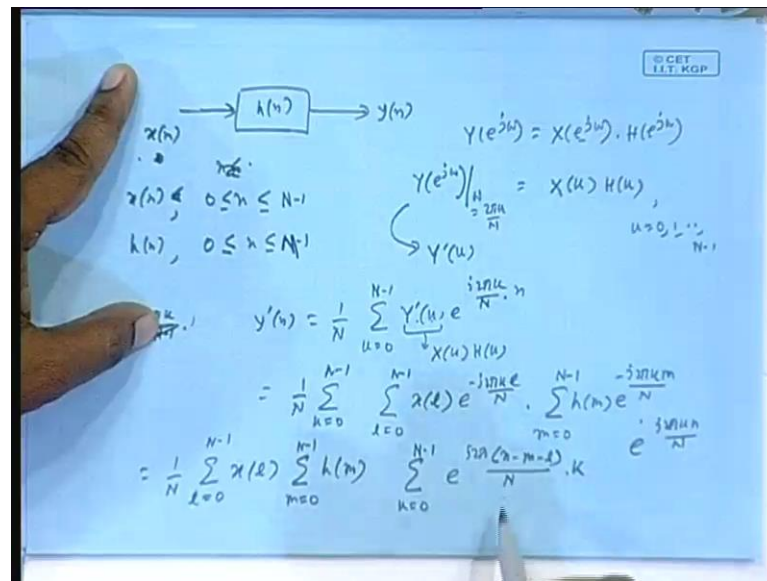 © CET
I.I.T. KGP
h(n)
x(n)
y(n)
Y(e^{jω}) = X(e^{jω}) . H(e^{jω})
x(n), 0 ≤ n ≤ N-1
Y(e^{jω})| = 2πk/N = X(k) H(k), k=0, 1.., N-1
h(n), 0 ≤ n ≤ N-1
Y'(k)
y'(n) = 1/N ∑_{k=0}^{N-1} Y'(k) e^{j2πk/N . n}
X(k) H(k)
= 1/N ∑_{k=0}^{N-1} ∑_{l=0}^{N-1} x(l) e^{-j2πkl/N} . ∑_{m=0}^{N-1} h(m) e^{-j2πkm/N} e^{j2πkn/N}
= 1/N ∑_{l=0}^{N-1} x(l) ∑_{m=0}^{N-1} h(m) ∑_{k=0}^{N-1} e^{j2π(n-m-l)/N . k}